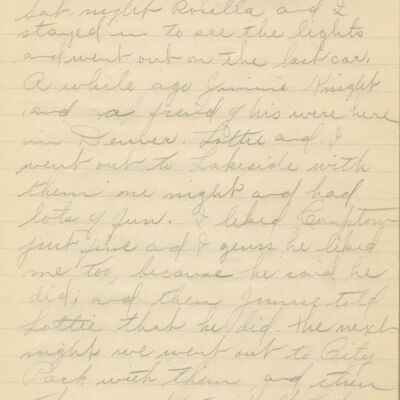 Sat. night Rosella and I
stayed in to see the lights
and went out on the last car.
A while ago Jimmie Knight
and a friend of his were here
in Denver. Lottie and I
went out to Lakeside with
them one night and had
lots of fun. I liked Compton
just fine and I guess he liked
me too, because he said he
did, and then Jimmie told
Lottie that he did. The next
night we went out to City
Park with them and then